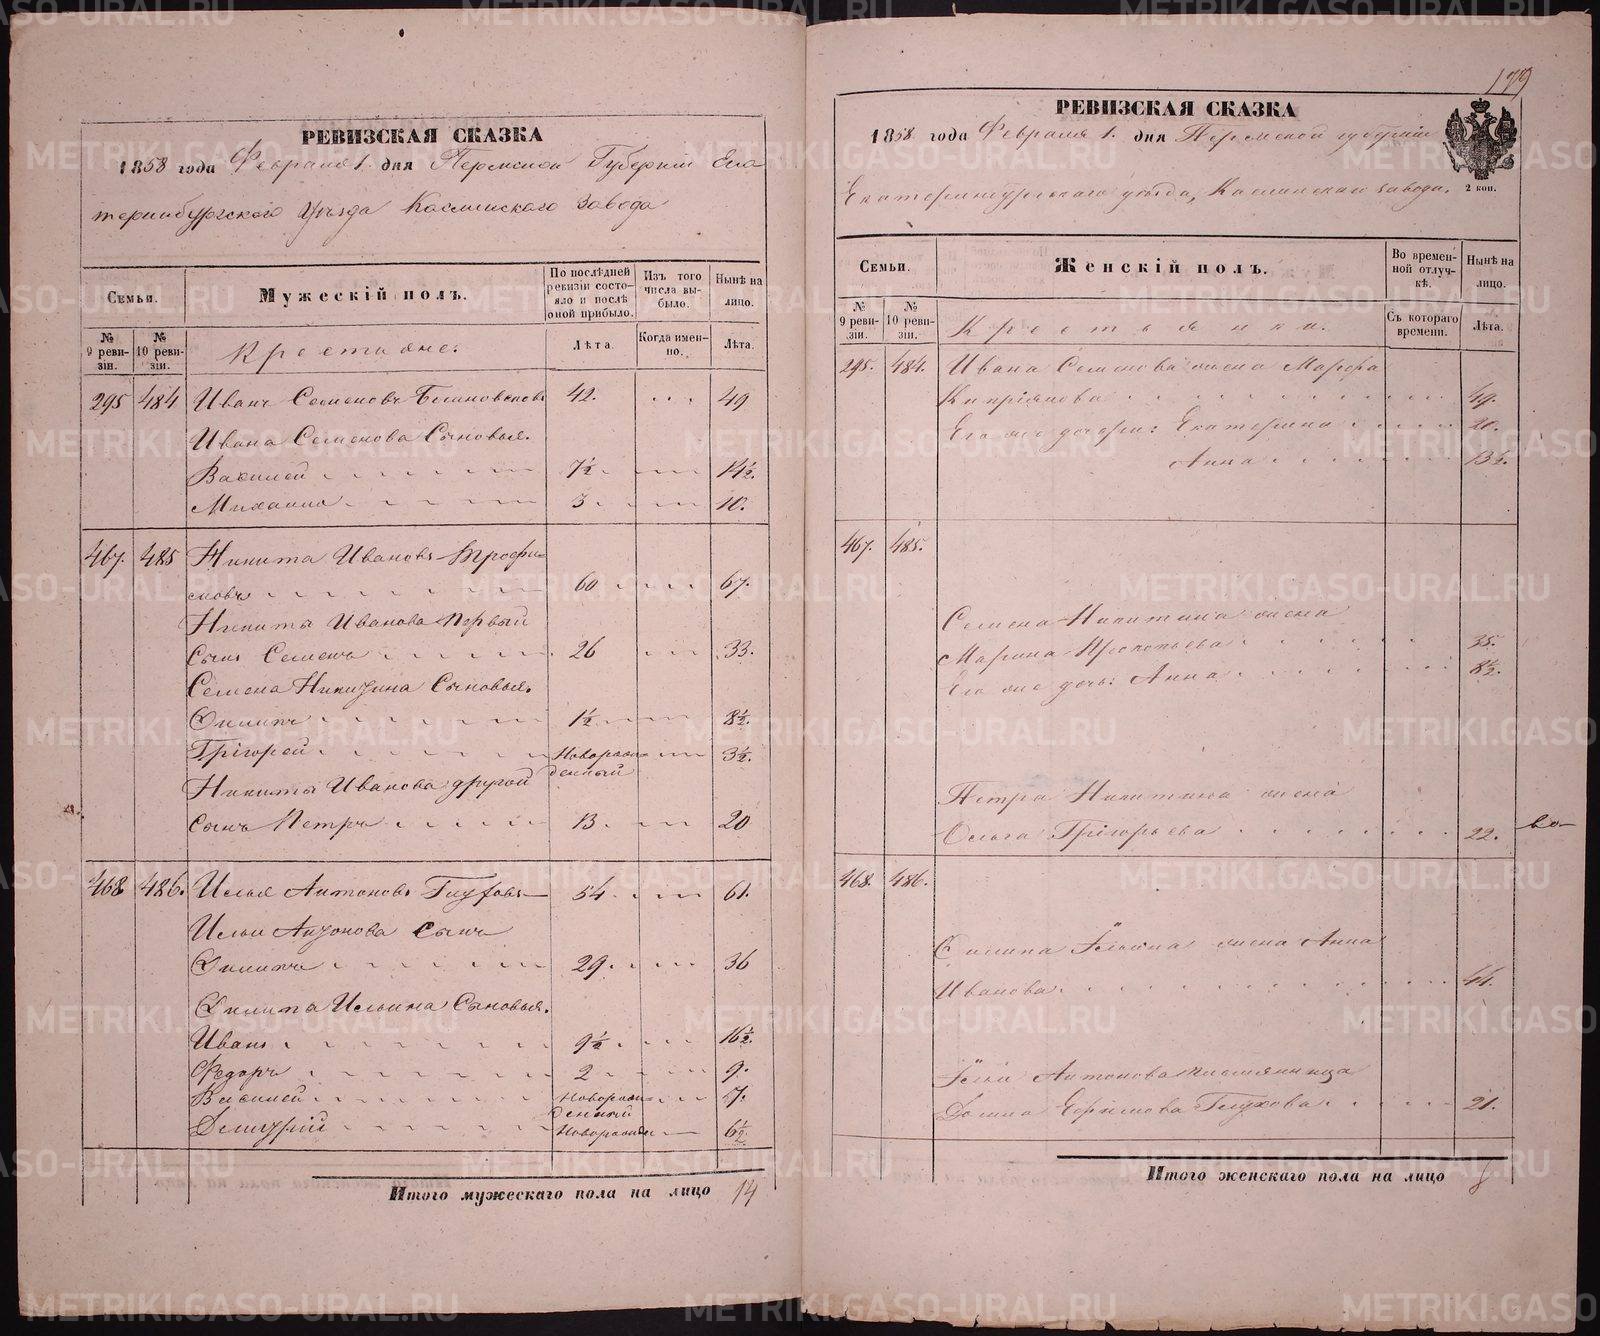 РЕВИЗСКАЯ СКАЗКА
1858 года Февраля 1. дня Пермской Губернiи Ека
теринбургскаго Уѣзда Каслинскаго Завода
Семьи.
Мужескій полъ.
По послѣдней ревизіи состояло и послѣ оной прибыло.
Изъ того числа выбыло.
Нынѣ на лицо.
№ 9 ревизіи.
№ 10 ревизіи.
Крестьяне:
Лѣта.
Когда именно.
Лѣта.
295 484 Иванъ Семеновъ 42. 49
Ивана Семенова Сыновья.
Василей 7½ 14½.
Михаило 3 10.
467. 485 Никита Ивановъ Трофи=
мовъ 60 67.
Никиты Иванова Первый
Сынъ Семенъ 26 33.
Семена Никитина Сыновья.
Филипъ 1½ 8½.
Григорей Новорож= 3½.
денный
Никиты Иванова другой
Сынъ Петръ 13 20
468 486. Илья Антоновъ Глуховъ 54 61.
Ильи Антонова Сынъ
Филипъ 29 36
Филипа Ильина Сыновья.
Иванъ 9½ 16½.
Федоръ 2 9.
Василей Новорож= 7.
денный
Дмитрій Новорожден 6½
Итого мужескаго пола на лицо 14
179
РЕВИЗСКАЯ СКАЗКА
1858 года Февраля 1. дня Пермской губерніи
Екатеринбургскаго уѣзда, Каслинскаго завода.
2 коп.
Семьи.
Женскій полъ.
Во временной отлучкѣ.
Нынѣ на лицо.
№ 9 ревизіи.
№ 10 ревизіи.
Крестьянки.
Съ котораго времени.
Лѣта.
295. 484. Ивана Семенова жена Марфа
Кипріянова 49.
Его же дочери: Екатерина 20.
Анна 13½.
467. 485.
Семена Никитина жена
Марина Прокопьева 35.
Его же дочь: Анна 8½.
Петра Никитина жена
Ольга Григорьева 22.
468. 486.
Филипа Ильина жена Анна
Иванова 41.
Ильи Антонова племянница
Ефимова Глухова 21.
Итого женскаго пола на лицо 8
METRIKI.GASO-URAL.RU